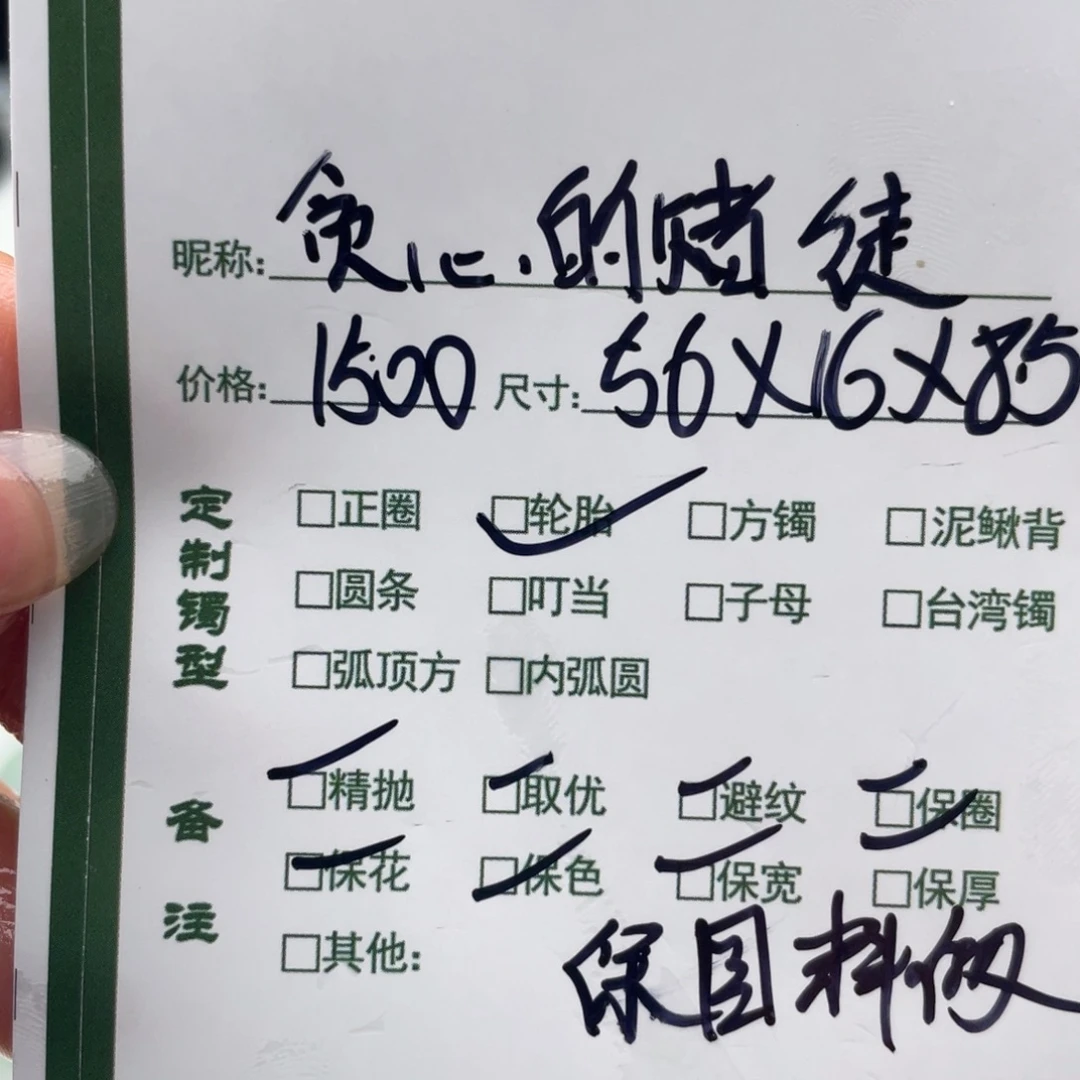 昵称: 贪心的赌徒
价格: 1500 尺寸: 56X16X85
定制镯型
□正圈 □轮胎 □方镯 □泥鳅背
□圆条 □叮当 □子母 □台湾镯
□弧顶方 □内弧圆
备注
□精抛 □取优 □避纹 □保圈
□保花 □保色 □保宽 □保厚
□其他:
保 料做